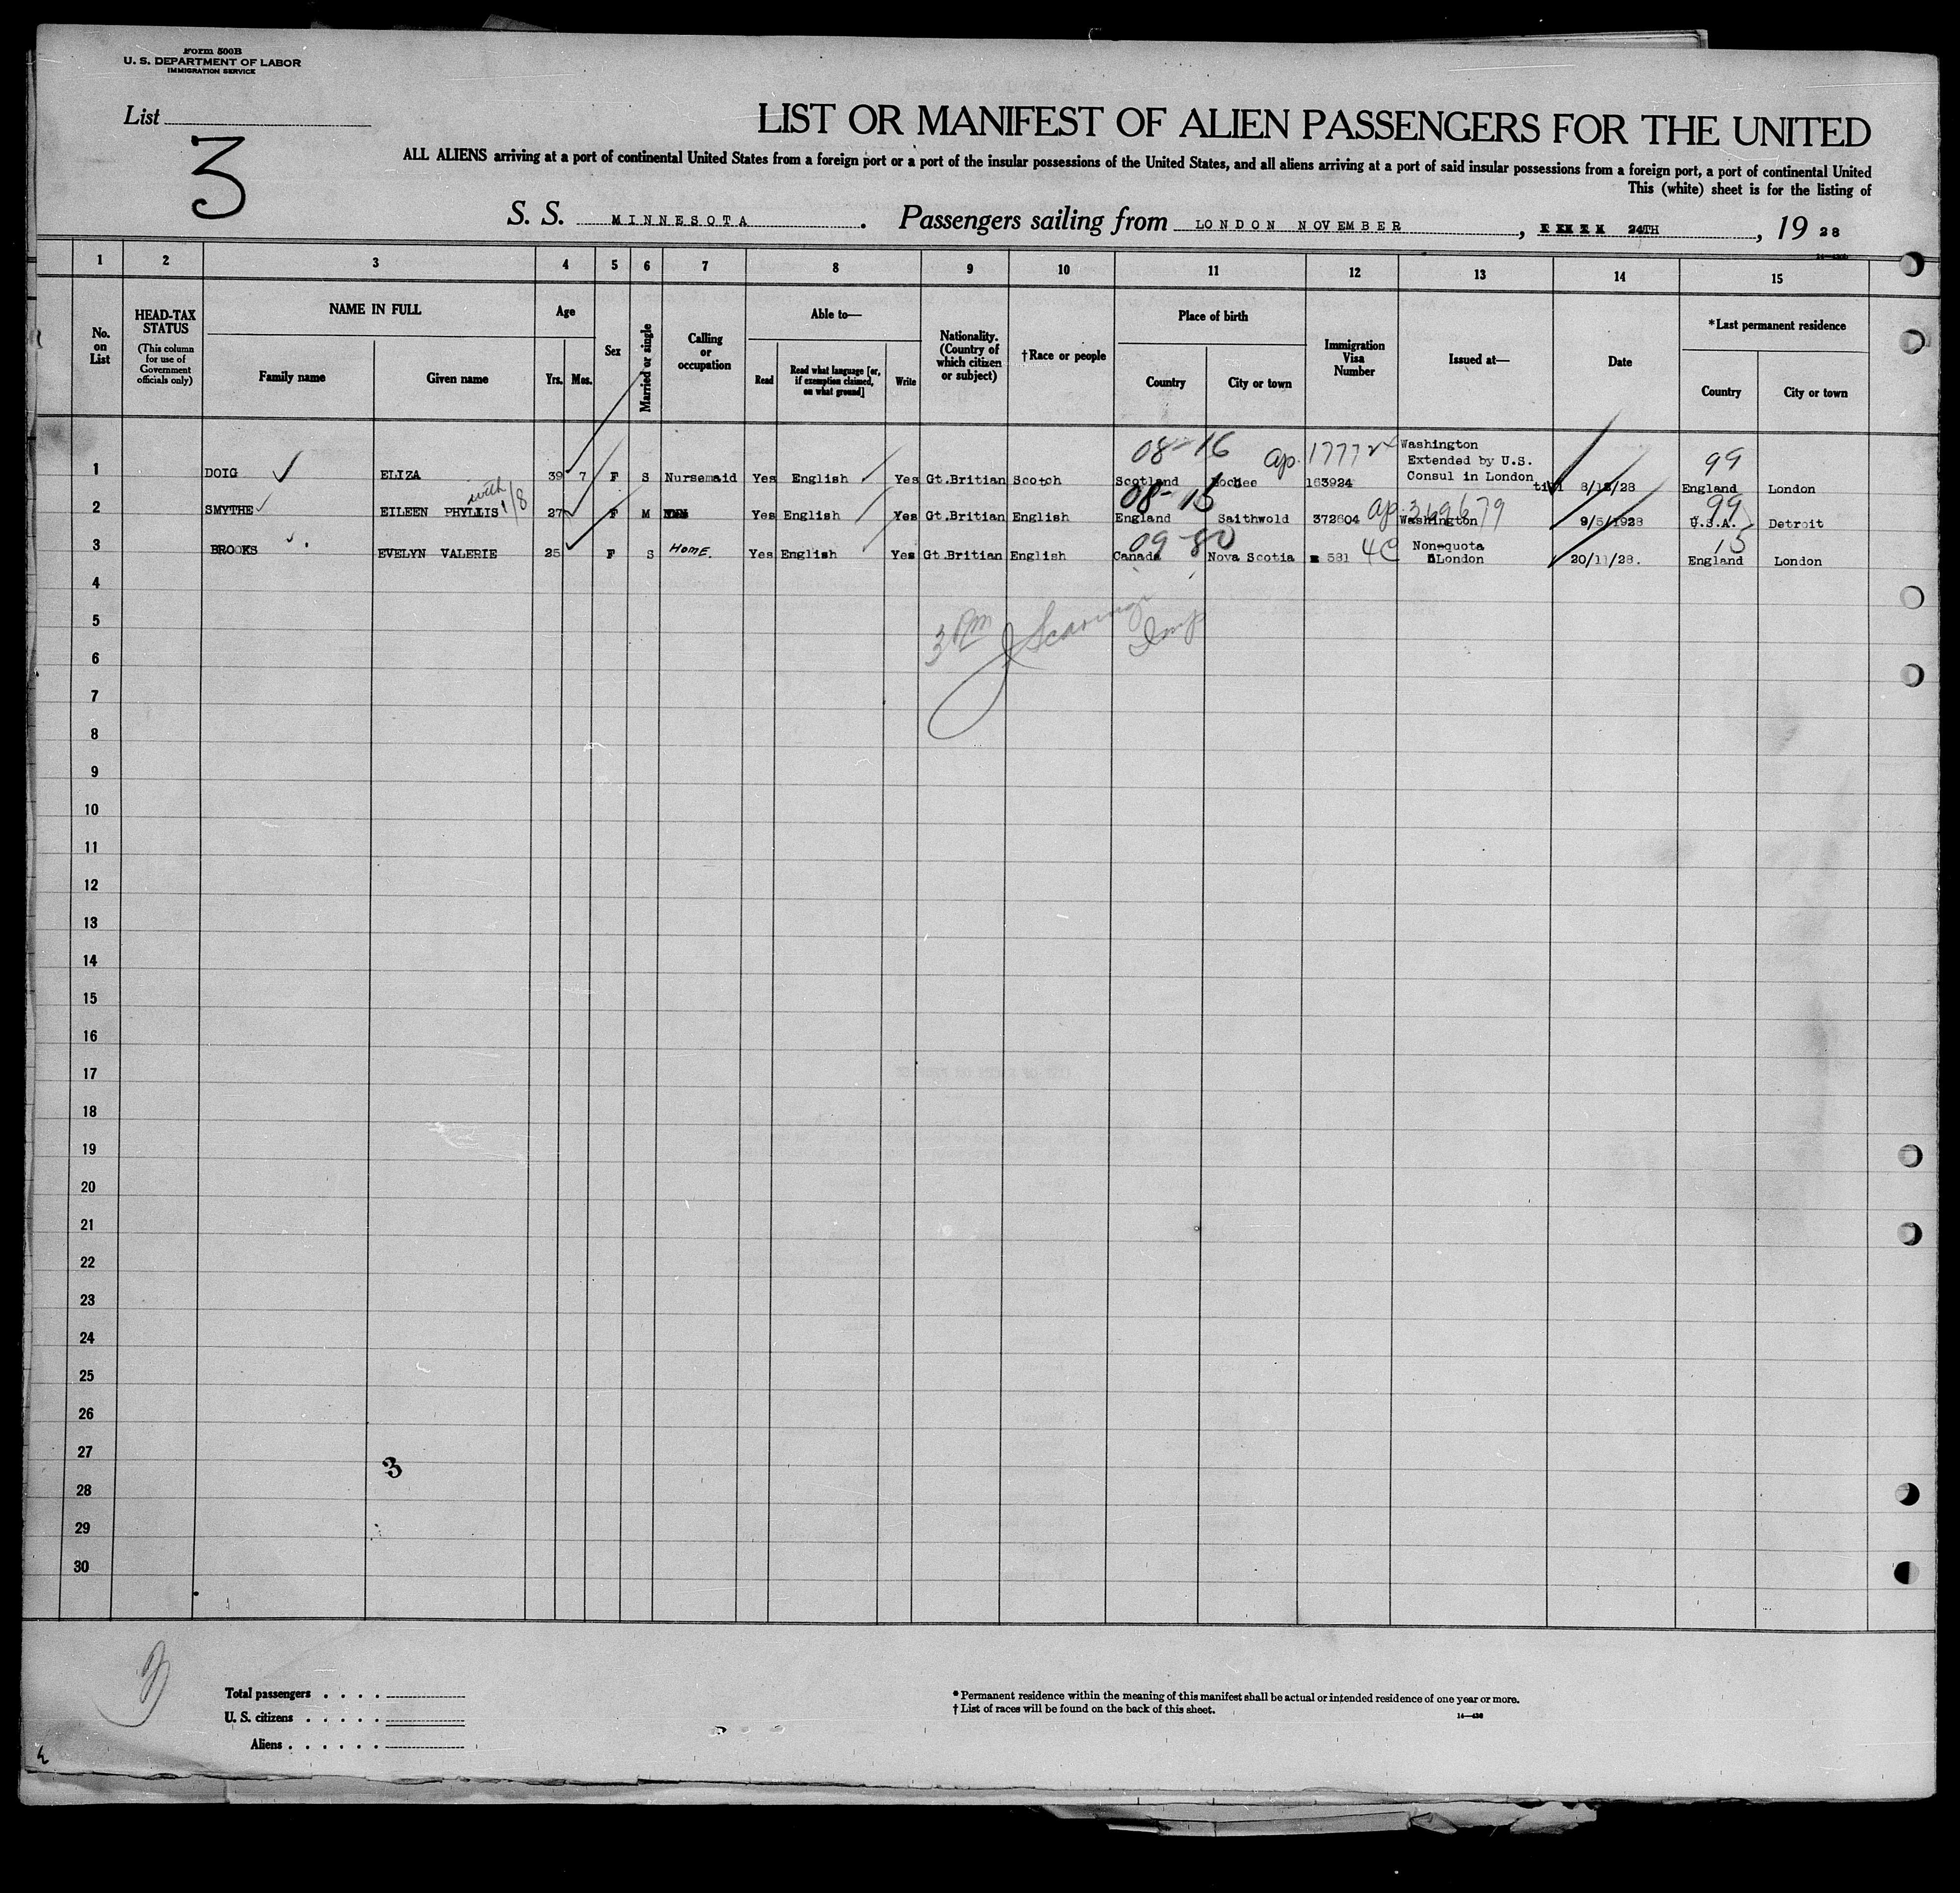 Form 500B
U. S. DEPARTMENT OF LABOR
IMMIGRATION SERVICE
List
3
LIST OR MANIFEST OF ALIEN PASSENGERS FOR THE UNITED
ALL ALIENS arriving at a port of continental United States from a foreign port or a port of the insular possessions of the United States, and all aliens arriving at a port of said insular possessions from a foreign port, a port of continental United
This (white) sheet is for the listing of
S. S. MINNESOTA. Passengers sailing from LONDON NOVEMBER, 24TH, 19 28
1 2 3 4 5 6 7 8 9 10 11 12 13 14 15
No. on List
HEAD-TAX STATUS (This column for use of Government officials only)
NAME IN FULL
Family name Given name
Age
Yrs. Mos.
Sex
Married or single
Calling or occupation
Able to—
Read Read what language [or, if exemption claimed, on what ground] Write
Nationality. (Country of which citizen or subject)
†Race or people
Place of birth
Country City or town
Immigration Visa Number
Issued at—
Date
*Last permanent residence
Country City or town
08-16 ap. 99
Washington
Extended by U.S.
Consul in London
1 DOIG ELIZA 39 7 F S Nursemaid Yes English Yes Gt.Britian Scotch Scotland 163924 England London
with 1/8 08-15 ap. 369679 99
2 SMYTHE EILEEN PHYLLIS 27 F M Yes English Yes Gt.Britian English England Saithwold 372604 Washington 9/5/1928 U.S.A. Detroit
09-80 4C 15
3 BROOKS EVELYN VALERIE 25 F S HOME. Yes English Yes Gt.Britian English Canada Nova Scotia 581 Non-quota London 20/11/28. England London
4
5
3 Pm
Insp
6
7
8
9
10
11
12
13
14
15
16
17
18
19
20
21
22
23
24
25
26
27
3
28
29
30
3
Total passengers . . . .
U. S. citizens . . . . .
Aliens . . . . . .
* Permanent residence within the meaning of this manifest shall be actual or intended residence of one year or more.
† List of races will be found on the back of this sheet.
14—430